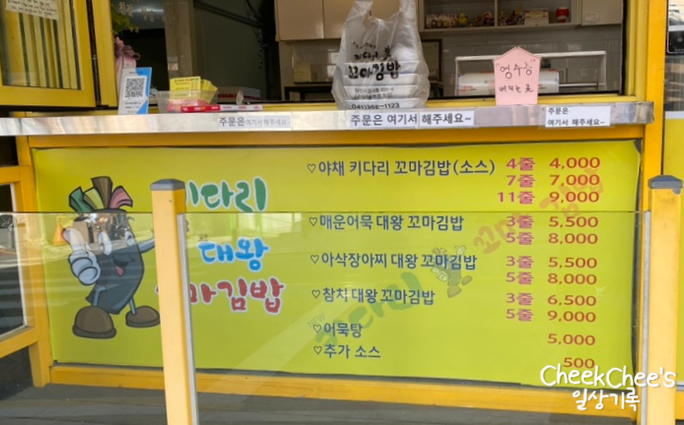 키다리
꼬마김밥
041)356-1123
"영수증"
버리는 곳
주문은 여기서 해주세요~
주문은 여기서 해주세요~
주문은
여기서 해주세요~
키다리
대왕
꼬마김밥
♡야채 키다리 꼬마김밥(소스) 4줄 4,000
7줄 7,000
11줄 9,000
♡매운어묵 대왕 꼬마김밥 3줄 5,500
5줄 8,000
♡아삭장아찌 대왕 꼬마김밥 3줄 5,500
5줄 8,000
♡참치 대왕 꼬마김밥 3줄 6,500
5줄 9,000
♡어묵탕 5,000
♡추가 소스 500
CheekChee's
일상기록